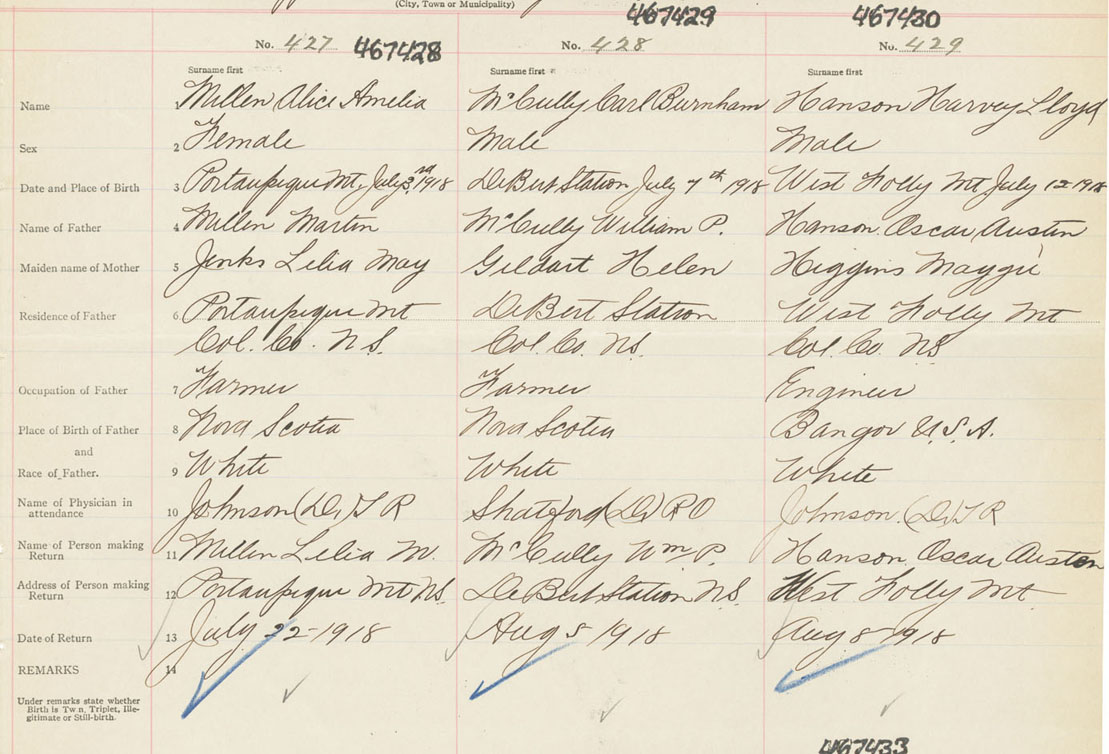 (City, Town or Municipality)
467429 467430
No. 427 467428 No. 428 No. 429
Surname first Surname first Surname first
Name Millen Alice Amelia McCully Carl Burnham Hanson Harvey Lloyd
Sex 2 Female Male Male
Date and Place of Birth 3 Portaupique Mt, July 3rd 1918 DeBert Station July 7th 1918 West Folly Mt July 12 1918
Name of Father 4 Millen Martin McCully William P. Hanson Oscar Austen
Maiden name of Mother 5 Jenks Lelia May Geldart Helen Higgins Maggie
Residence of Father 6 Portaupique Mt DeBert Station West Folly Mt
Col. Co. N S. Col. Co. N.S. Col. Co. NS
Occupation of Father 7 Farmer Farmer Engineer
Place of Birth of Father 8 Nova Scotia Nova Scotia Bangor U.S.A.
and
Race of Father. 9 White White White
Name of Physician in
attendance 10 Johnson (Dr) T R Shatford (Dr) R O Johnson. (Dr) T R
Name of Person making
Return 11 Millen Lelia M. McCully Wm P. Hanson Oscar Austen
Address of Person making
Return 12 Portaupique Mt NS. DeBert Station N.S. West Folly Mt.
Date of Return 13 July 22-1918 Aug 5 1918 Aug 8-1918
REMARKS 14
Under remarks state whether
Birth is Twin, Triplet, Ille-
gitimate or Still-birth.
467433